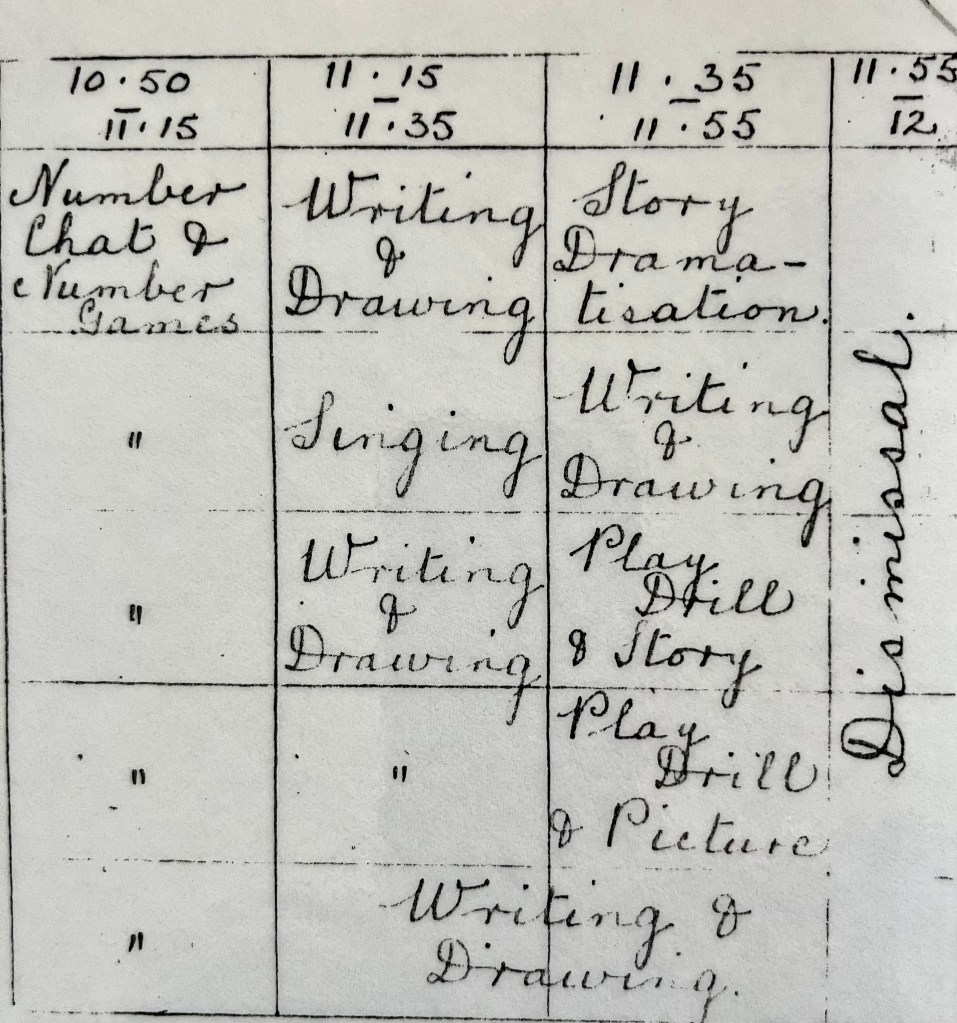 10.50 – 11.15
11.15 – 11.35
11.35 – 11.55
11.55 – 12.
Number
Chat &
Number
Games
Writing
&
Drawing
Story
Drama-
tisation.
Dismissal.
"
Singing
Writing
&
Drawing
"
Writing
&
Drawing
Play
Drill
& Story
"
"
Play
Drill
& Picture
"
Writing &
Drawing.